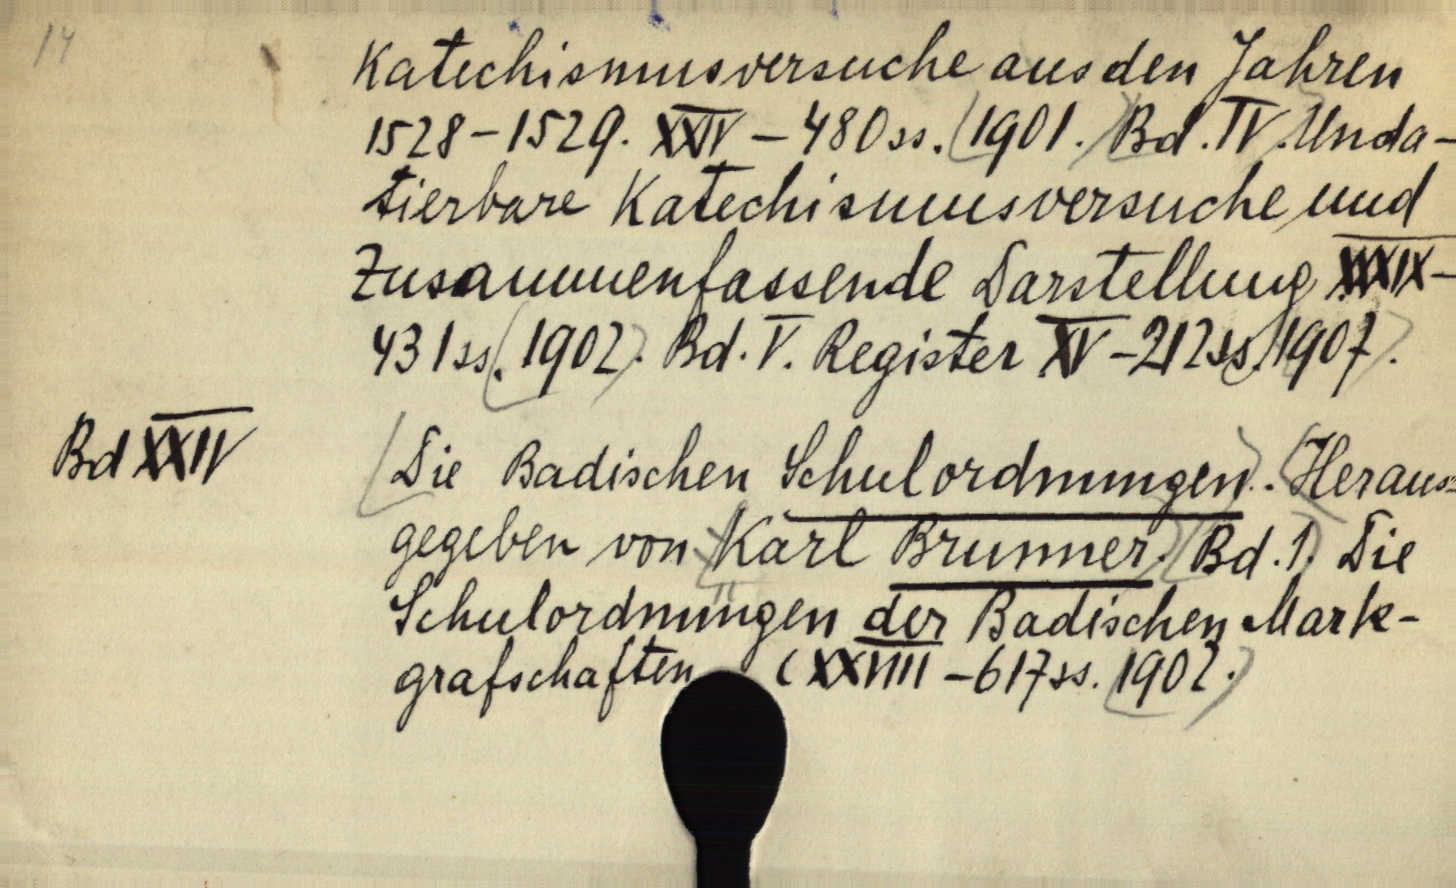 14
Katechismusversuche aus den Jahren
1528-1529. XXIV - 480 ss. (1901.) Bd. IV. Unda-
tierbare Katechismusversuche und
Zusammenfassende Darstellung XXXIX-
431 ss. (1902). Bd. V. Register XV - 212 ss. (1907).
Bd XXIV (Die Badischen Schulordnungen). (Heraus-
gegeben von Karl Brunner.) (Bd. 1.) Die
Schulordnungen der Badischen Mark-
grafschaften (XXVIIII - 617 ss. (1902.)